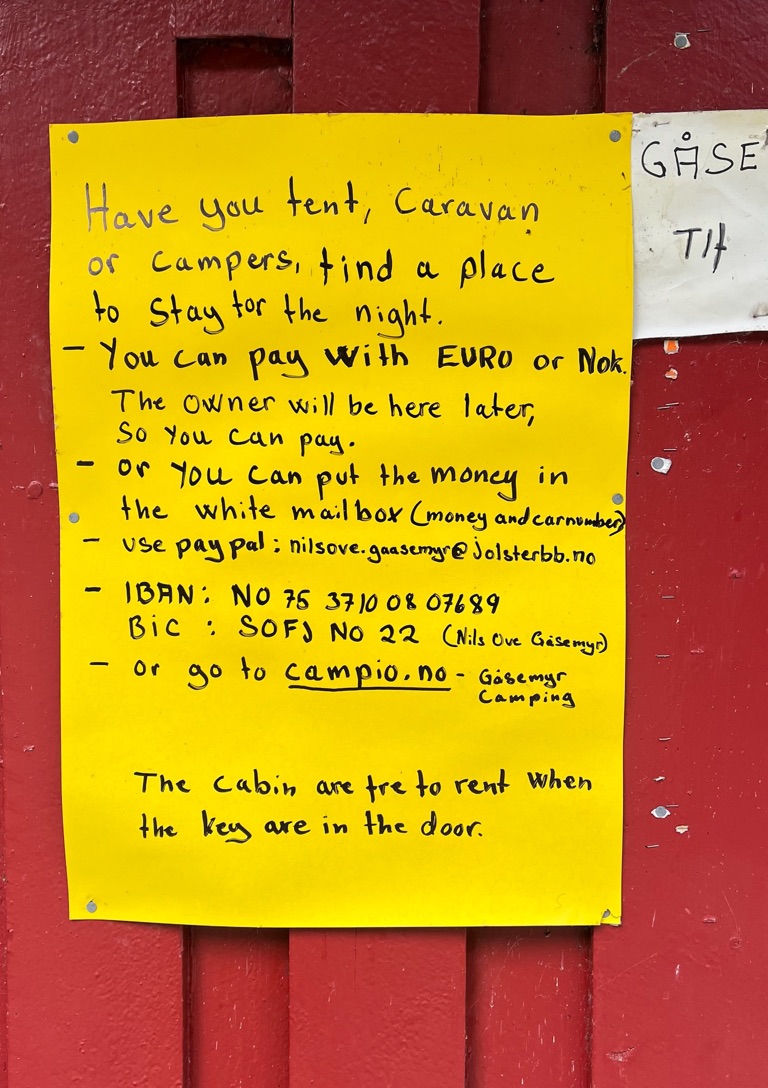 Have you tent, Caravan
or campers, find a place
to stay for the night.
- You can pay with EURO or Nok.
The owner will be here later,
So you can pay.
- or you can put the money in
the white mailbox (money and carnumber)
- use paypal: nilsove.gaasemyr@jolsterbb.no
- IBAN: NO 75 3710 08 07689
BiC : SOFJ NO 22 (Nils Ove Gåsemyr)
- or go to campio.no - Gåsemyr
Camping
The cabin are fre to rent when
the key are in the door.
GÅSE